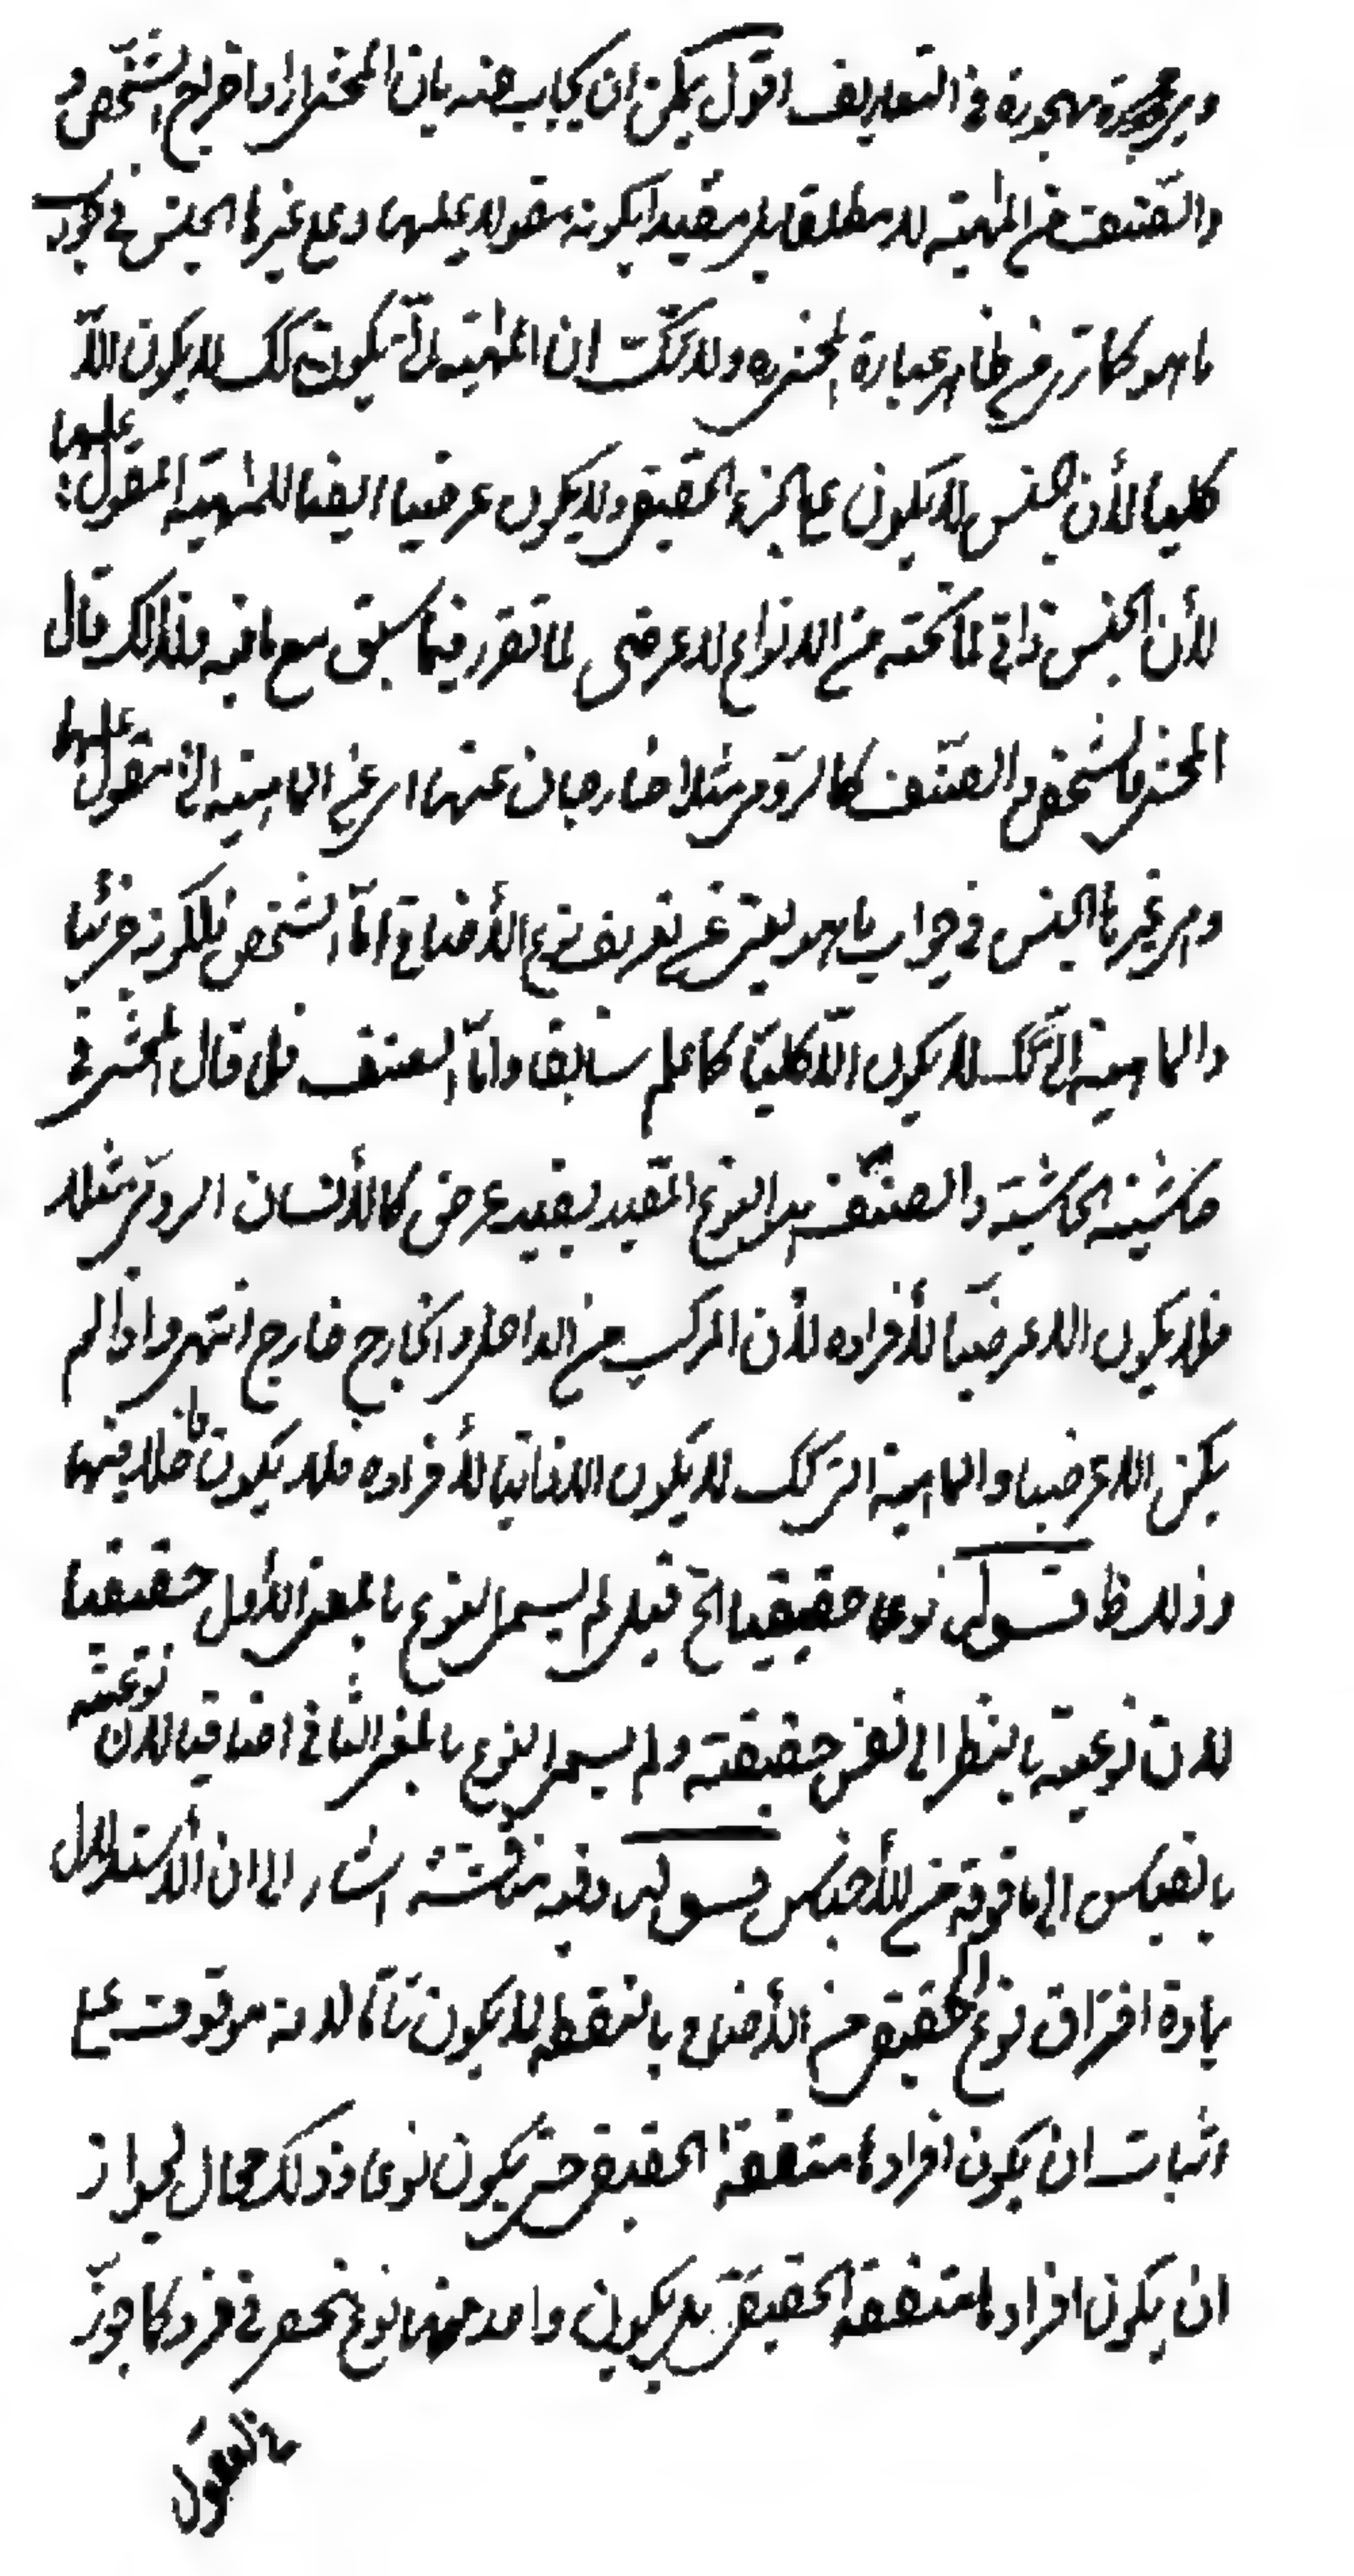 وهى مهجورة فى التعاريف اقول يمكن ان يجاب عنه بان المحشى اراد اخراج الشخص
والصنف من المهية لا مطلقا بل مقيدا بكونه مقولا عليها وعلى غيرها الجنس فى جواب
ما هو كما ترى من ظاهر عبارة المحشى ره ولا شك ان المهية التى يكون كك لا يكون الا
كليا لأن الجنس لا يكون على الجزء الحقيقى ولا يكون عرضيا ايضا للمهية المقول عليها
لأن الجنس ذاتى لما تحته من الانواع لا عرضى لما تقرر فيما سبق مع ما فيه ولذلك قال
المحشى فالشخص والصنف كالرومى مثلا خارجان عنها اى عن الماهية التى مقول عليها
وعلى غيرها الجنس فى جواب ما هو يعنى عن تعريف نوع الأضافى امّا الشخص فلكونه جزئيا
والماهية التى كك لا يكون الّا كليّا كما علم سابقا وامّا الصنف فلما قال المحشى فى
حاشية الحاشية والصنف هو النوع المقيد بقيد عرضى كالأنسان الرومى مثلا
فلا يكون الا عرضيّا لأفراده لأن المركب من الداخل والخارج خارج انتهى واذا لم
يكن الا عرضيا والماهية التى كك لا يكون الا ذاتيا لأفراده فلا يكون داخلا فيها
وذلك ظ قوله نوعا حقيقيا الخ قيل لم يسمى النوع بالمعنى الأول حقيقيا
لان نوعيته بالنظر الى نفس حقيقته ولم يسمى النوع بالمعنى الثانى اضافيا لان نوعيته
بالقياس الى ما فوقه من الأجناس قوله وفيه مناقشة اشار الى ان الأستدلال
بمادة افتراق نوع الحقيقى من الأضافى بالنقطه لا يكون تامّا لانه موقوف على
اثبات ان يكون افرادها متفقة الحقيقة حتى يكون نوعا وذلك محال لجواز
ان يكون افرادها متفقة الحقيقة بل يكون واحد منها نوع منحصر فى فرد كما جوز